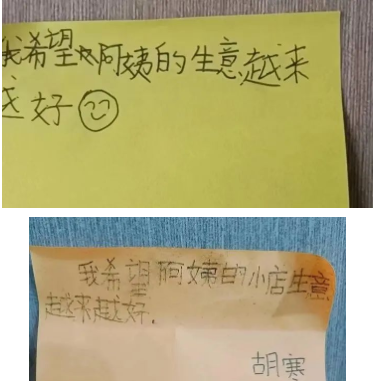 我希望阿姨的生意越来
越好
我希望阿姨的小店生意
越来越好.
胡寒